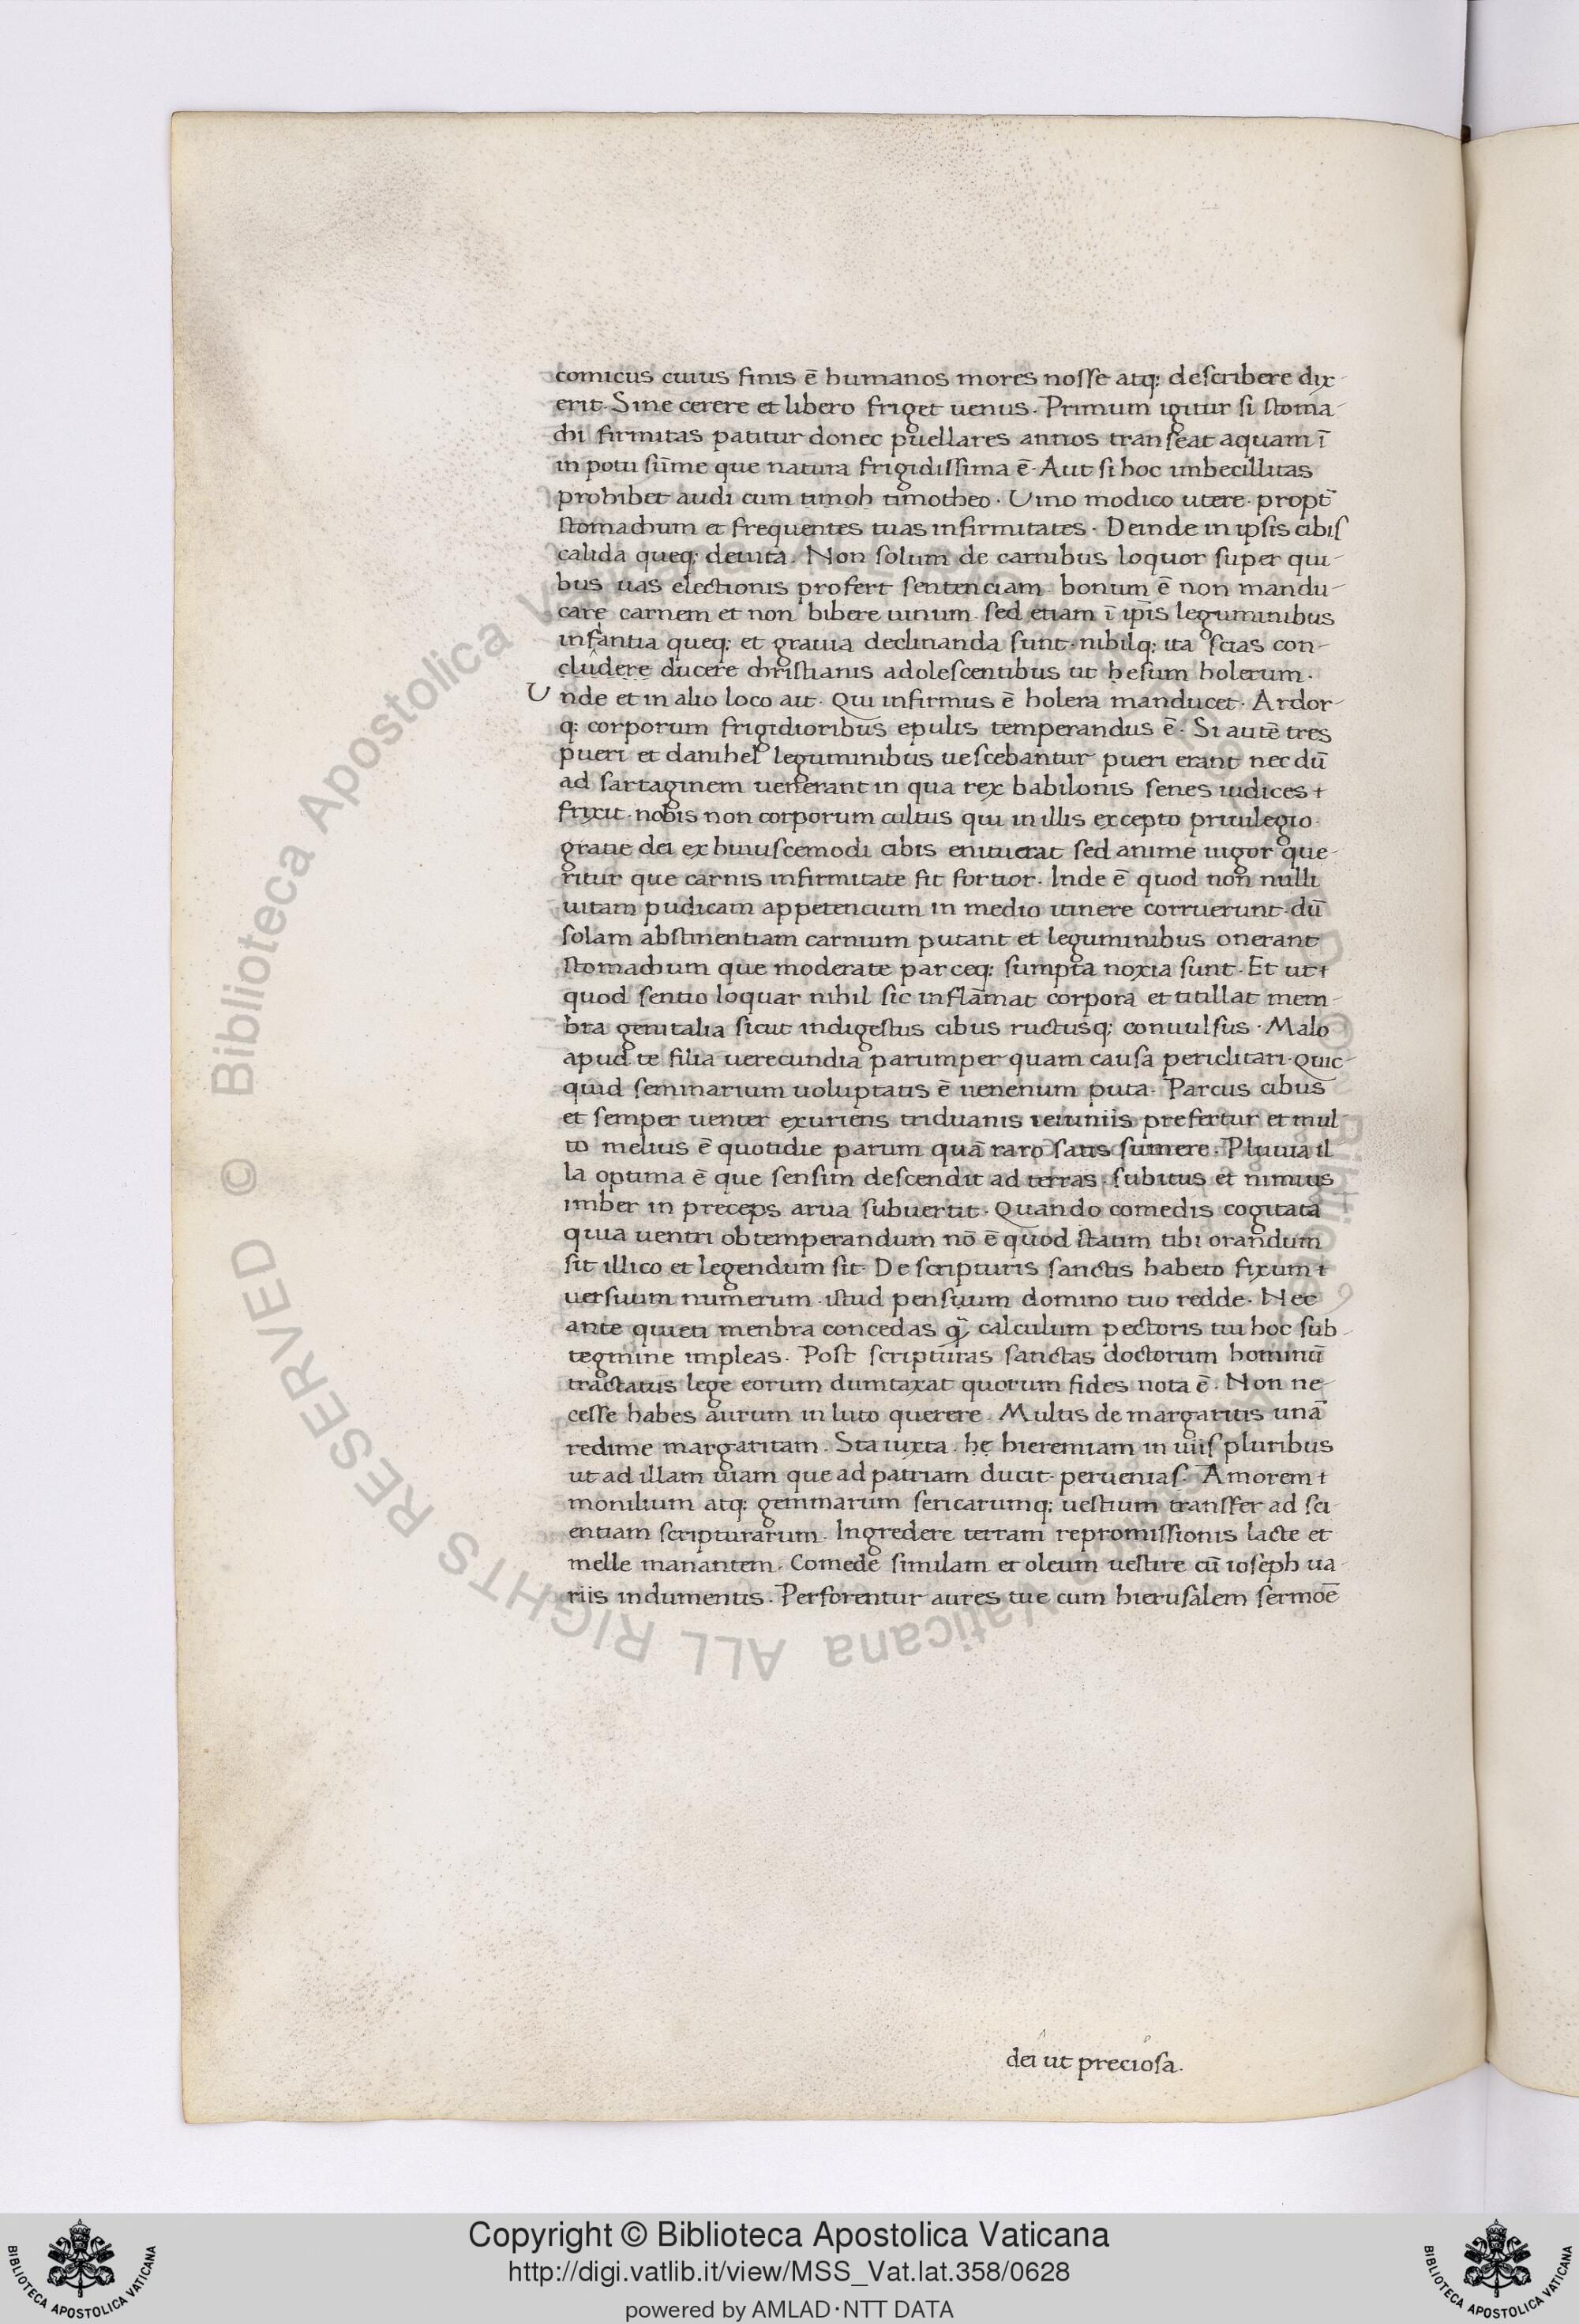 comicus cuius finis ē humanos mores nosse atq; describere dix-
erit. Sine cerere et libero friget uenus. Primum igitur si stoma-
chi firmitas patitur donec puellares annos transeat aquam ī
in potu sūme que natura frigidissima ē. Aut si hoc imbecillitas
prohibet audi cum timoh timotheo. Uino modico utere propt̄
stomachum et frequentes tuas infirmitates. Deinde in ipsis cibis
calida queq; deuita. Non solum de carnibus loquor super qui-
bus uas electionis profert sentenciam bonum ē non mandu-
care carnem et non bibere uinum sed etiam ī ip̄is leguminibus
infantia queq; et grauia declinanda sunt. nihilq; ita scias con-
cludere ducere christianis adolescentibus ut hesum holerum.
Unde et in alio loco ait. Qui infirmus ē holera manducet. Ardor-
q; corporum frigidioribus epulis temperandus ē. Si autē tres
pueri et danihel leguminibus uescebantur pueri erant nec dū
ad sartaginem uenerant in qua rex babilonis senes iudices
frixit. nobis non corporum cultus qui in illis excepto priuilegio
gratie dei ex huiuscemodi cibis enituerat sed anime uigor que-
ritur que carnis infirmitate fit fortior. Inde ē quod non nulli
uitam pudicam appetencium in medio itinere corruerunt. dū
solam abstinentiam carnium putant et leguminibus onerant
stomachum que moderate parceq; sumpta noxia sunt. Et ut
quod sentio loquar nihil sic inflāmat corpora et titillat mem-
bra genitalia sicut indigestus cibus ructusq; conuulsus. Malo
apud te filia uerecundia parumper quam causa periclitari. Quic-
quid seminarium uoluptatis ē uenenum puta. Parcus cibus
et semper uenter exuriens triduanis ieiuniis prefertur et mul-
to melius ē quotidie parum quā raro satis sumere. Pluuia il
la optima ē que sensim descendit ad terras. subitus et nimius
imber in preceps arua subuertit. Quando comedis cogitata
quia uentri obtemperandum nō ē quod statim tibi orandum
sit illico et legendum sit. De scripturis sanctis habeto fixum
uersuum numerum. istud pensuum domino tuo redde. Nec
ante quieti menbra concedas q̄ calculum pectoris tui hoc sub-
tegmine impleas. Post scripturas sanctas doctorum hominū
tractatus lege eorum dumtaxat quorum fides nota ē. Non ne-
cesse habes aurum in luto querere. Multis de margaritis unā
redime margaritam. Sta iuxta he hieremiam in uiis pluribus
ut ad illam uiam que ad patriam ducit peruenias. Amorem
monilium atq; gemmarum sericarumq; uestium transfer ad sci-
entiam scripturarum. Ingredere terram repromissionis lacte et
melle manantem. Comede similam et oleum uestire cū ioseph ua-
riis indumentis. Perforentur aures tue cum hierusalem sermōe
dei ut preciosa.
Copyright © Biblioteca Apostolica Vaticana
http://digi.vatlib.it/view/MSS_Vat.lat.358/0628
powered by AMLAD·NTT DATA
BIBLIOTECA APOSTOLICA VATICANA
BIBLIOTECA APOSTOLICA VATICANA
© Biblioteca Apostolica Vaticana ALL RIGHTS RESERVED